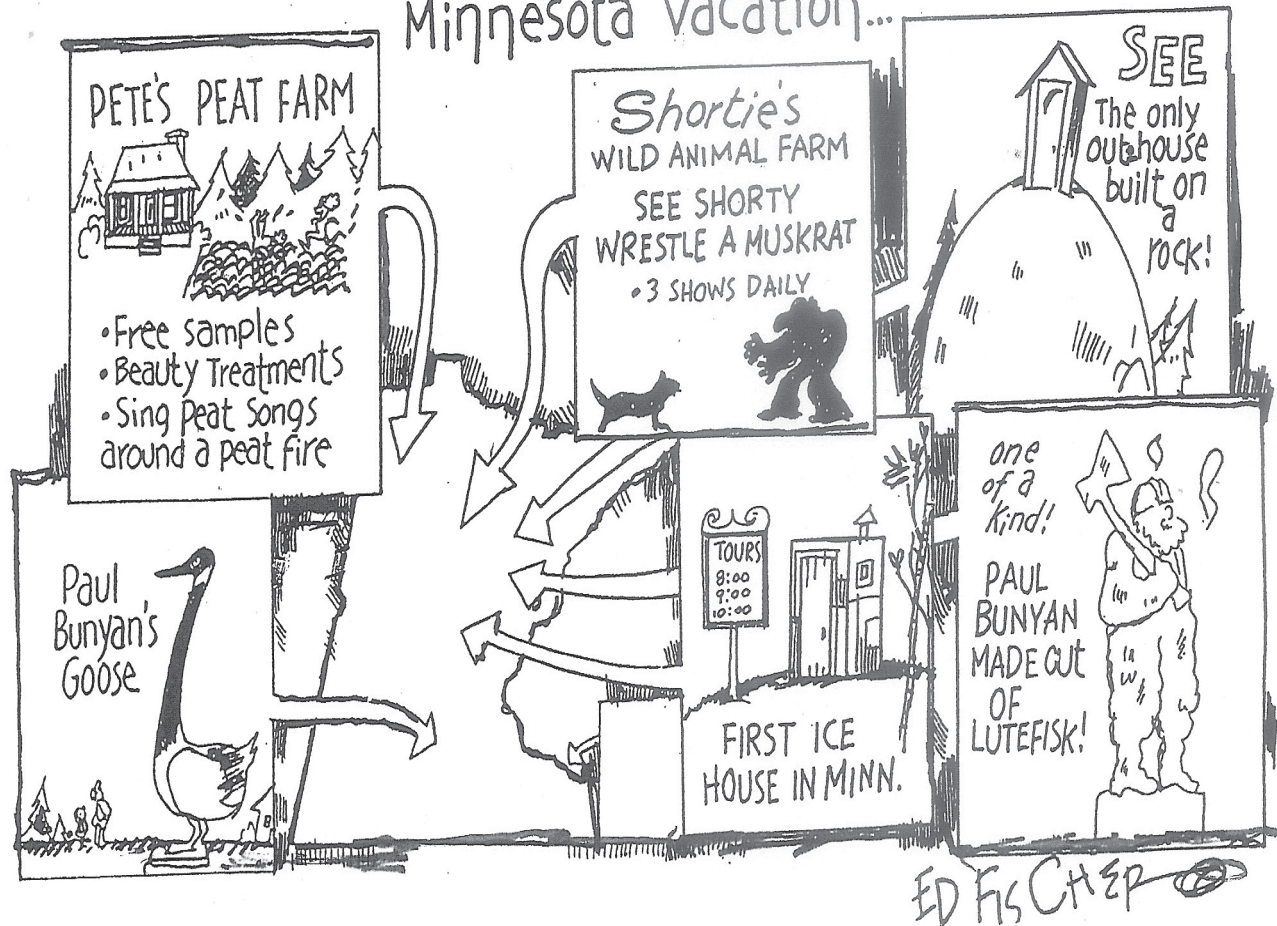 Minnesota Vacation...
PETE'S PEAT FARM
•Free samples
•Beauty Treatments
•Sing Peat Songs
around a peat fire
Shortie's
WILD ANIMAL FARM
SEE SHORTY
WRESTLE A MUSKRAT
•3 SHOWS DAILY
SEE
The only
outhouse
built on
a
rock!
Paul
Bunyan's
Goose
TOURS
8:00
9:00
10:00
FIRST ICE
HOUSE IN MINN.
one
of a
kind!
PAUL
BUNYAN
MADE OUT
OF
LUTEFISK!
ED FISCHER